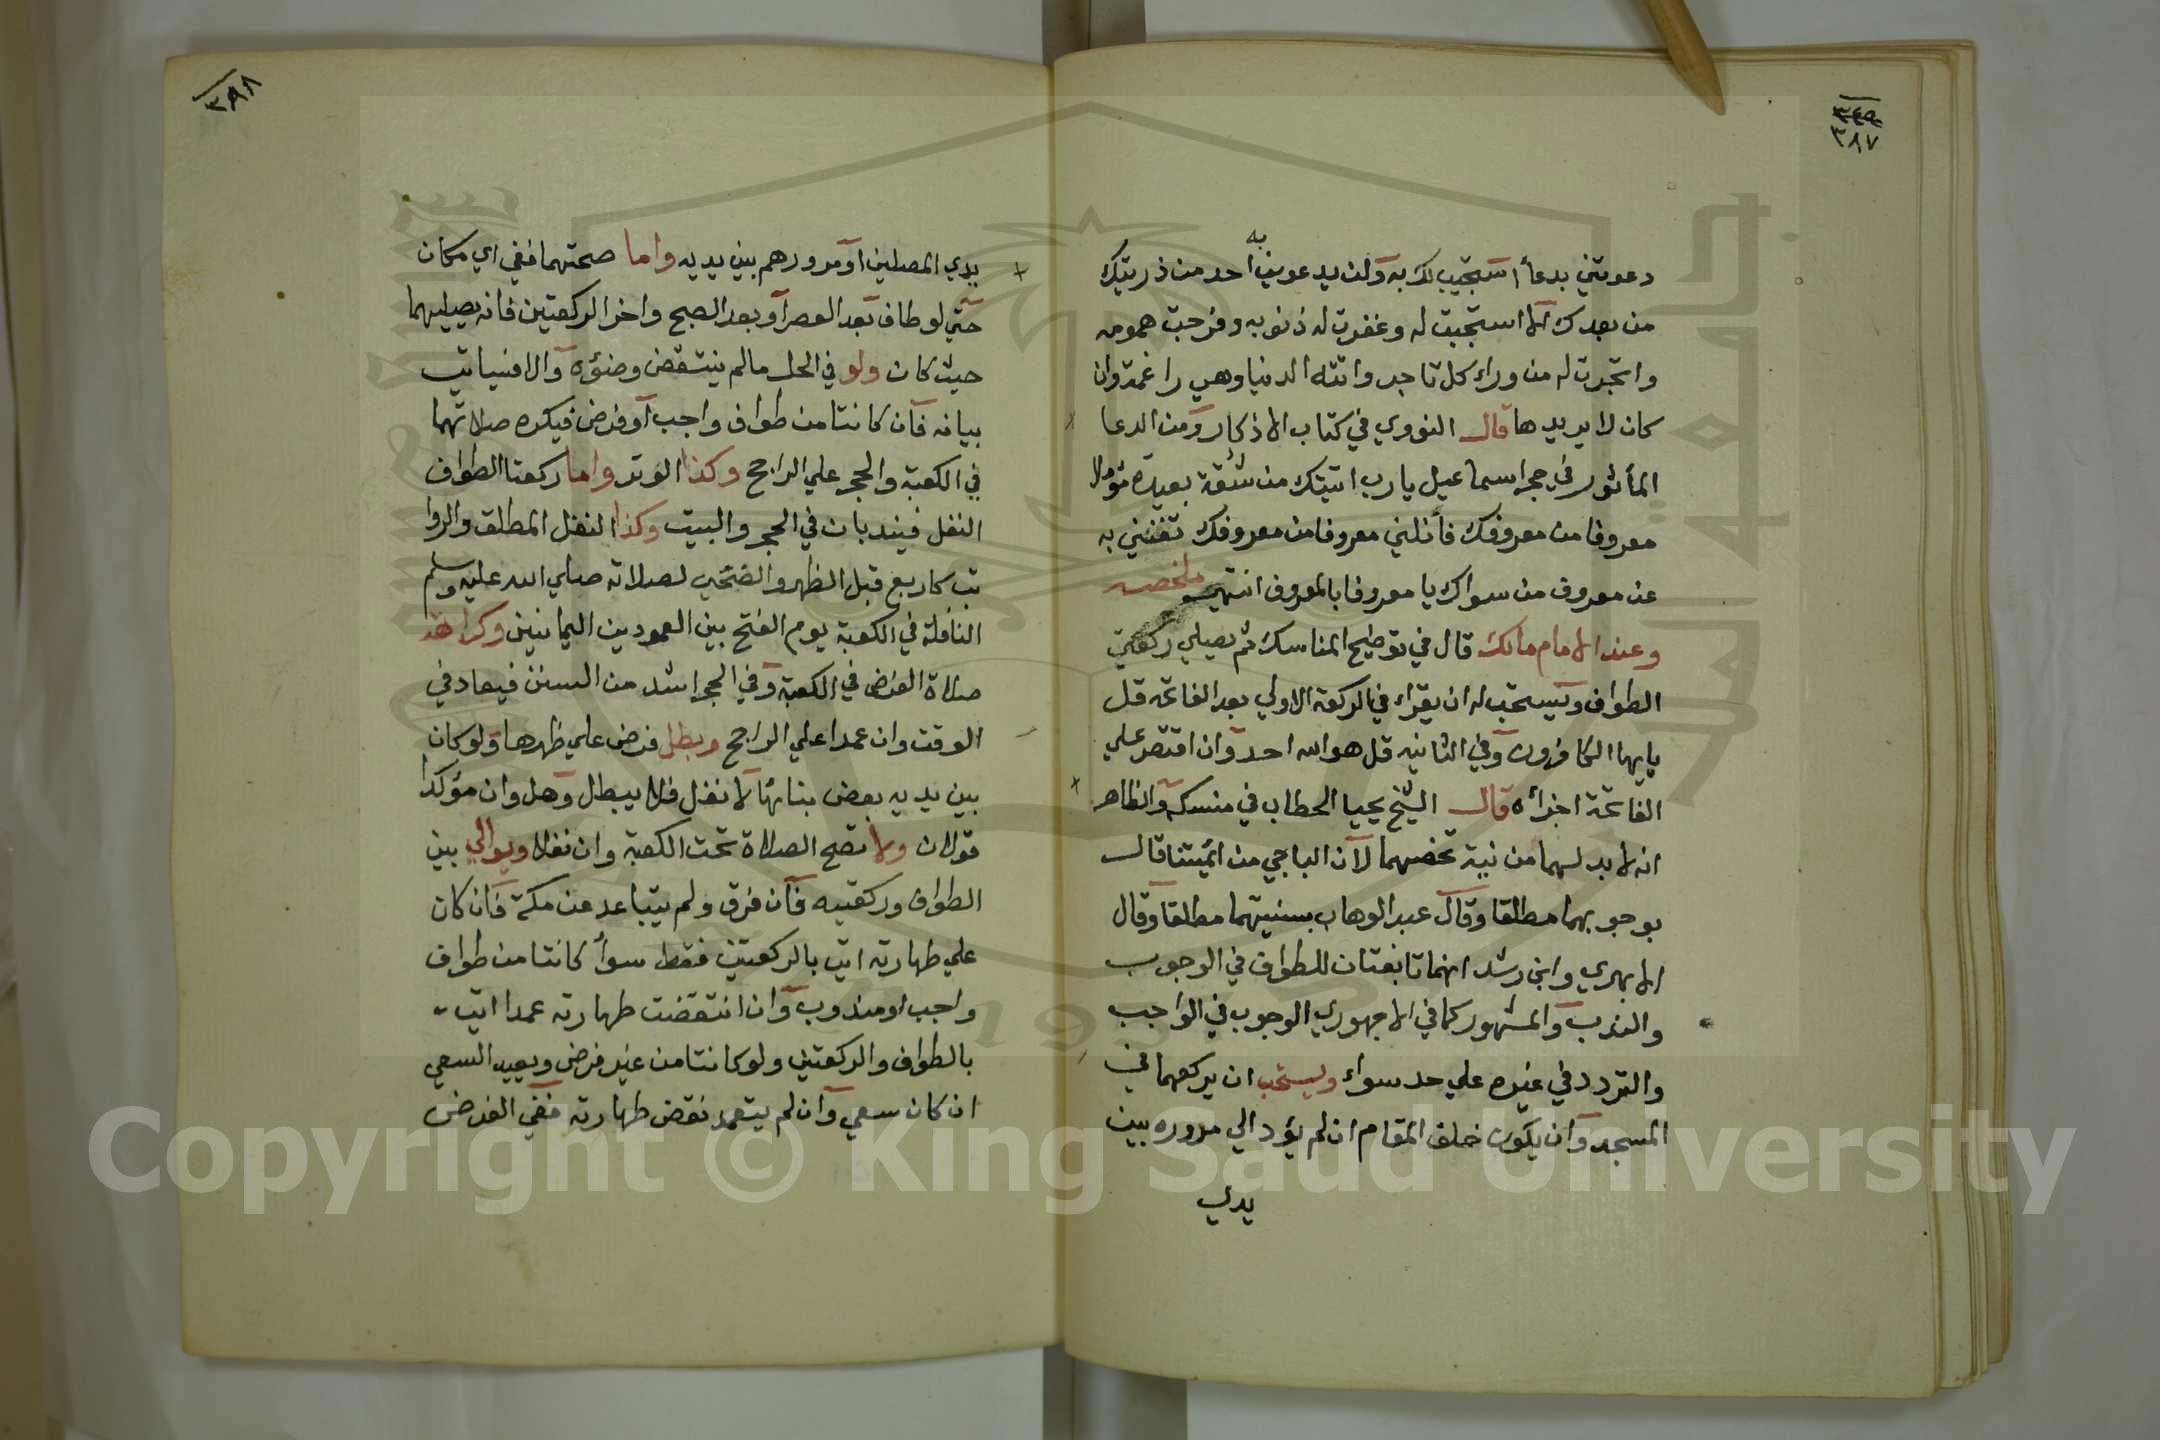 ٣٤٥
٣٨٧
به
دعوتني بدعأ استجيب لك به ولن يدعوني احد من ذريتك
من بعدك الا استجبت له وغفرت له ذنوبه وفرجت همومه
واتجرت له من وراء كل تاجر واتته الدنيا وهي راغمة وان
كان لا يريدها قال النووي في كتاب الاذكار ومن الدعا
المأثور في حجر اسماعيل يارب اتيتك من شقة بعيدة مؤملا
معروفا من معروفك فأنلني معروفا من معروفك تغنني به
عن معروف من سواك يا معروفا بالمعروف انتهي ملخصه
وعند الامام مالك قال في توضيح المناسك ثم يصلي ركعتي
الطواف ويستحب له ان يقراء في الركعة الاولي بعد الفاتحه قل
يايها الكافرون وفي الثانيه قل هو الله احد وان اقتصر علي
الفاتحة اجزأه قال الشيخ يحيا الحطاب في منسكه والظاهر
انه لا بد لهما من نية تخصهما لان الباجي من ائمتنا قال
بوجوبهما مطلقا وقال عبد الوهاب بسنيتهما مطلقا وقال
الابهري وابن رشد انهما تابعتان للطواف في الوجوب
والندب والمشهور كما في الاجهوري الوجوب في الواجب
والتردد في غيره علي حد سواء ويستحب ان يركعهما في
المسجد وان يكون خلف المقام ان لم يؤد الي مروره بين
يدي
٣٨٨
يدي المصلين او مرورهم بين يديه واما صحتهما ففي اي مكان
حتي لو طاف بعد العصر او بعد الصبح واخر الركعتين فانه يصليهما
حيث كان ولو في الحل ما لم ينتقض وضؤه والا فسيات
بيانه فان كانتا من طواف واجب او فرض فيكره صلاتهما
في الكعبة والحجر علي الراجح وكذا الوتر واما ركعتا الطواف
النفل فيندبان في الحجر والبيت وكذا النفل المطلق والروا
تب كاربع قبل الظهر والضحي لصلاته صلي الله عليه وسلم
النافلة في الكعبة يوم الفتح بين العمودين اليمانيين وكراهة
صلاة الفرض في الكعبة وفي الحجر اشد من السنن فيعاد في
الوقت وان عمدا علي الراجح وبطل فرض علي ظهرها ولو كان
بين يديه بعض بنائها لا نفل فلا يبطل وهل وان مؤكدا
قولان ولا تصح الصلاة تحت الكعبة وان نفلا ويوالي بين
الطواف وركعتيه فان فرق ولم يتباعد عن مكة فان كان
علي طهارته اتي بالركعتين فقط سوأ كانتا من طواف
واجب او مندوب وان انتقضت طهارته عمدا اتي
بالطواف والركعتين ولو كانتا من غير فرض ويعيد السعي
ان كان سعي وان لم يتعمد نقض طهارته ففي الفرض
Copyright © King Saud University